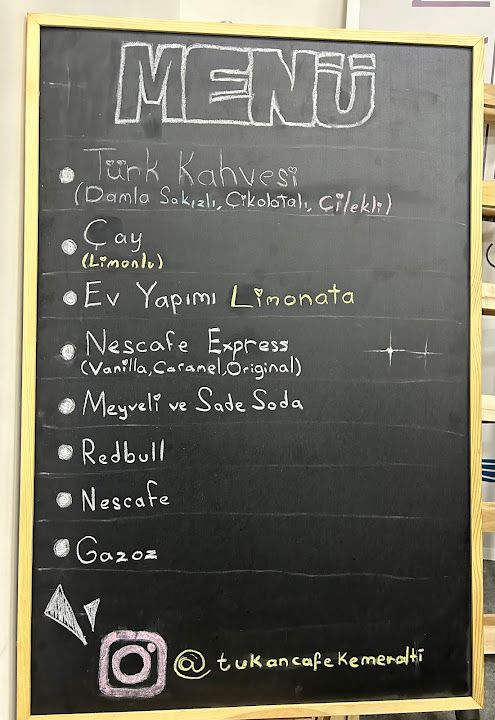 MENÜ
Türk Kahvesi
(Damla Sakızlı, Çikolatalı, Çilekli)
Çay
(Limonlu)
Ev Yapımı Limonata
Nescafe Express
(Vanilla, Caramel, Original)
Meyveli ve Sade Soda
Redbull
Nescafe
Gazoz
@tukancafekemeralti